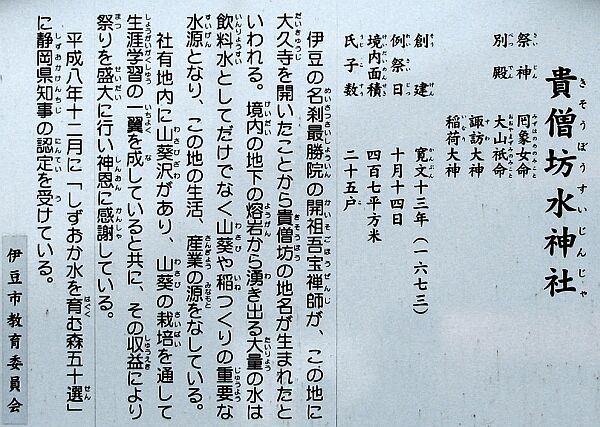 貴僧坊水神社
祭神 罔象女命
別殿 大山祇命
諏訪大神
稲荷大神
創建 寛文十三年(一六七三)
例祭日 十月十四日
境内面積 四百七平方米
氏子数 二十五戸
伊豆の名刹最勝院の開祖吾宝禅師が、この地に
大久寺を開いたことから貴僧坊の地名が生まれたと
いわれる。境内の地下の熔岩から湧き出る大量の水は
飲料水としてだけでなく山葵や稲つくりの重要な
水源となり、この地の生活、産業の源をなしている。
社有地内に山葵沢があり、山葵の栽培を通して
生涯学習の一翼を成していると共に、その収益により
祭りを盛大に行い神恩に感謝している。
平成八年十二月に「しずおか水を育む森五十選」
に静岡県知事の認定を受けている。
伊豆市教育委員会